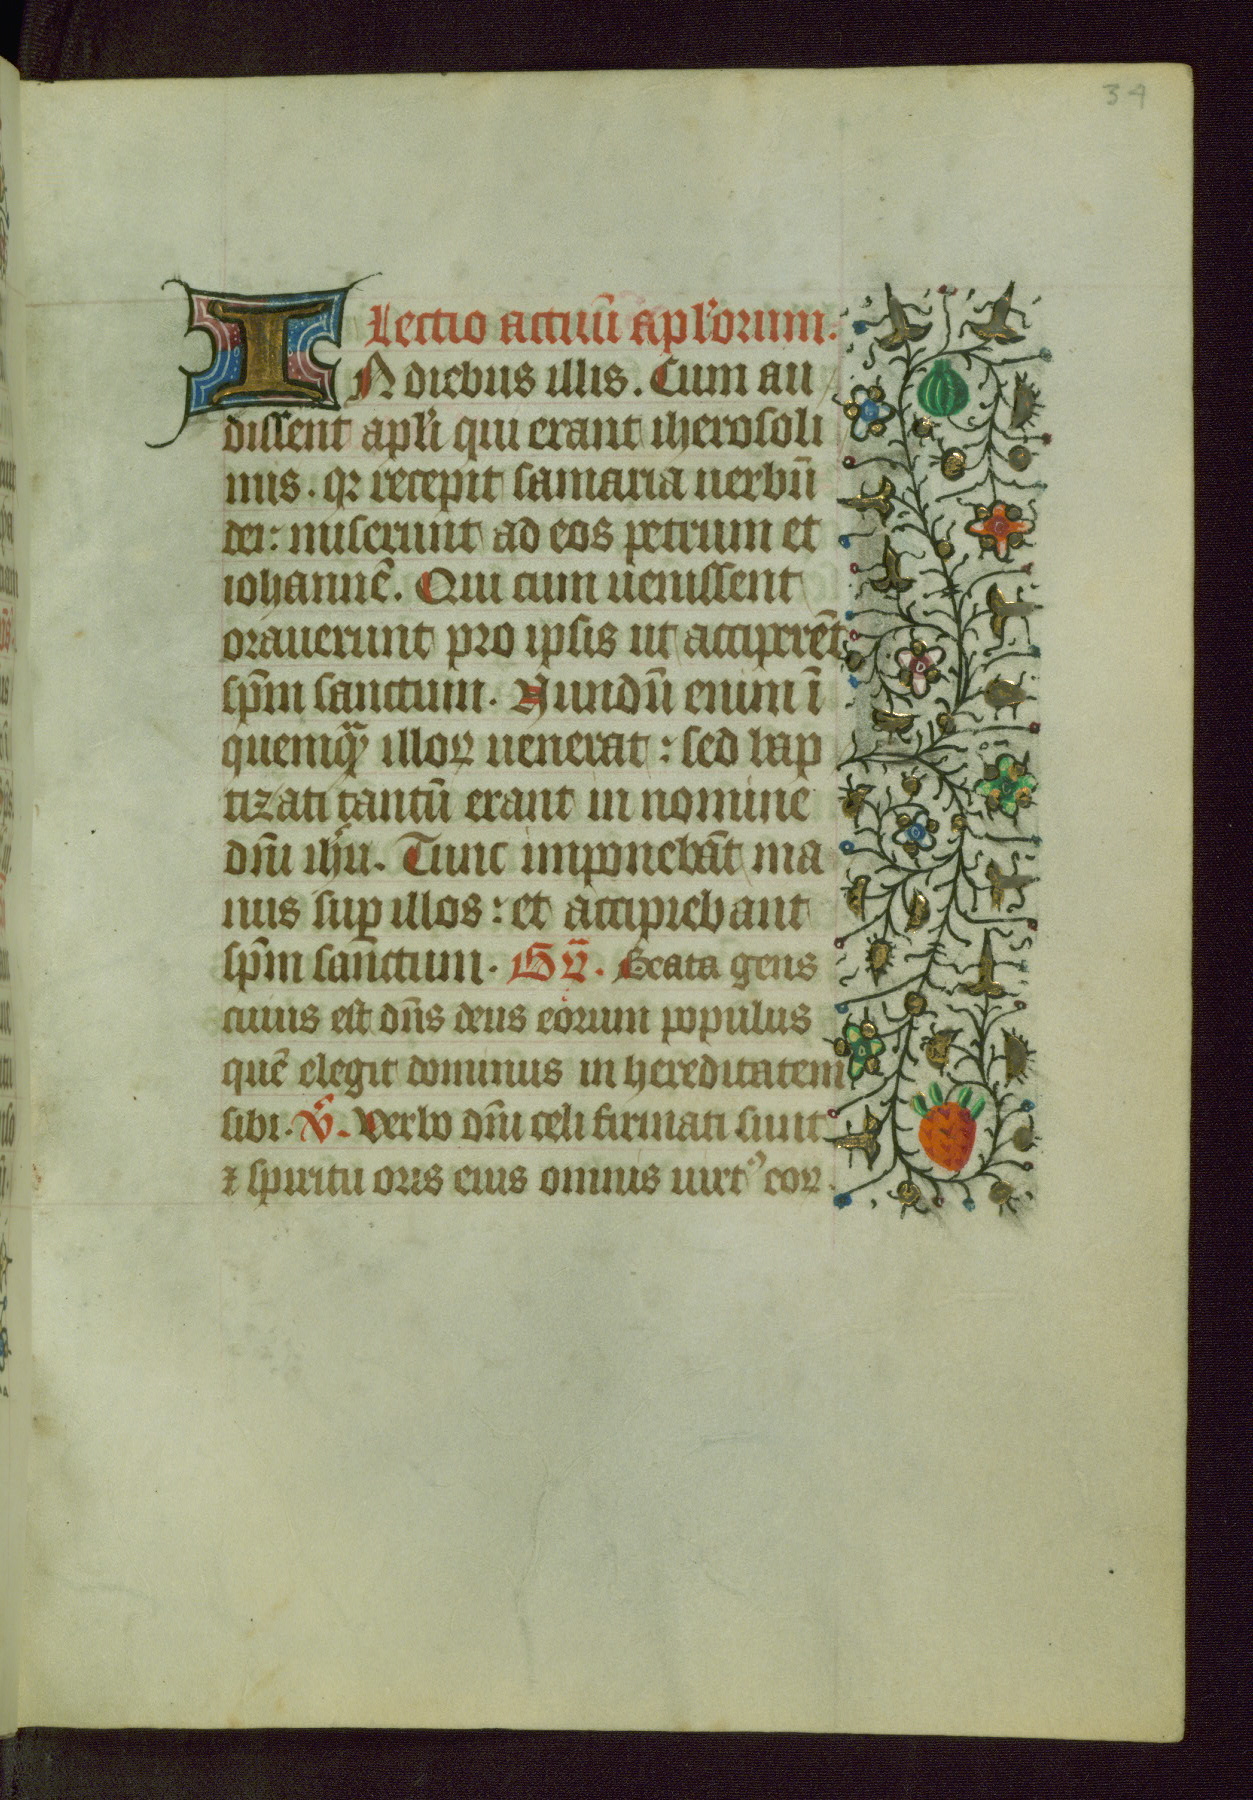 34
Lectio actuū apl'orum.
IN diebus illis. Cum au
dissent apl'i qui erant iherosoli
mis. qꝛ recepit samaria uerbū
dei: miserunt ad eos petrum et
iohannē. Qui cum uenissent
orauerunt pro ipsis ut acciperēt
sp̄m sanctum. Nundū enim ī
quemqᷓ illoꝝ uenerat: sed bap
tizati tantū erant in nomine
dn̄i ih̄u. Tunc imponebāt ma
nus suꝑ illos: et accipiebant
sp̄m sanctum. Gͬ. Beata gens
cuius est dn̄s deus eorum populus
quē elegit dominus in hereditatem
sibi. V̄. Verbo dn̄i celi firmati sunt
⁊ spiritu oris eius omnis uirtꝰ eoꝝ.